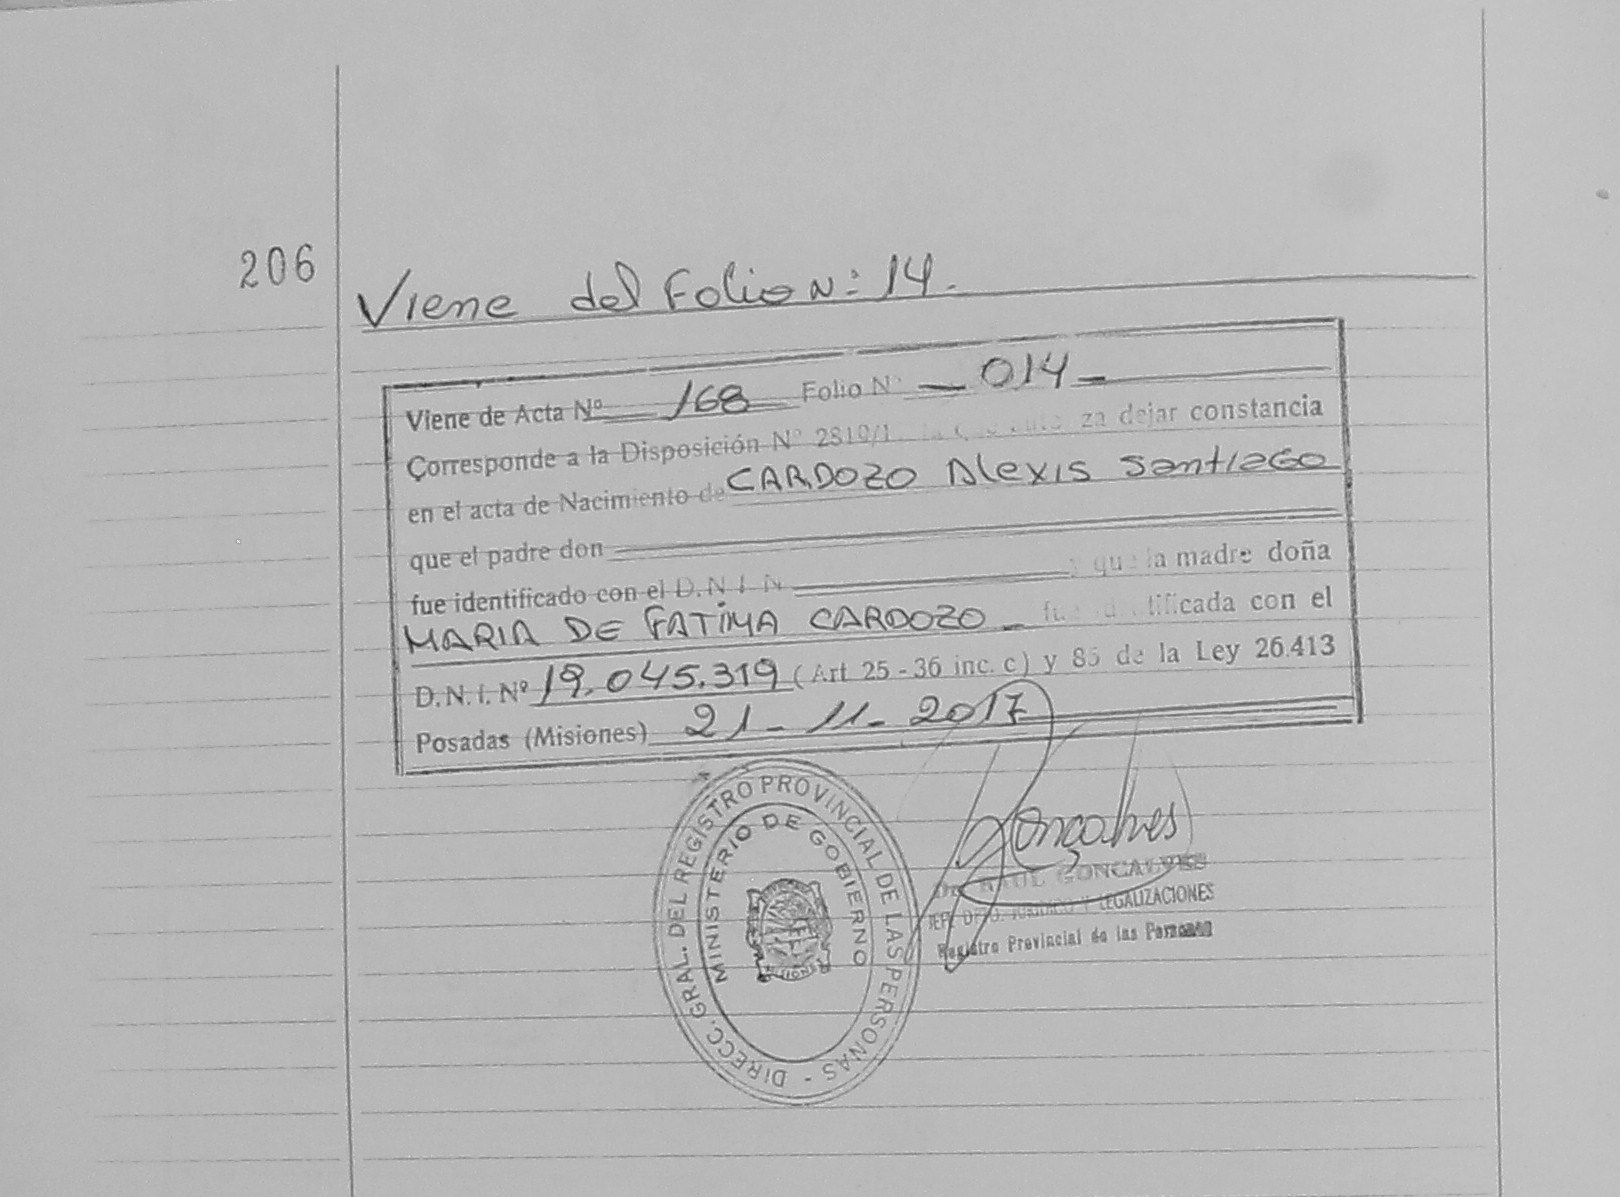 206
Viene del Folio N: 14.
Viene de Acta Nº 168 Folio Nº 014
Corresponde a la Disposición Nº 2810/1 que autoriza dejar constancia
en el acta de Nacimiento de CARDOZO Alexis Santiago
que el padre don
fue identificado con el D.N.I. N y que la madre doña
MARIA DE FATIMA CARDOZO fue identificada con el
D.N.I. Nº 19.045.319 (Art 25 - 36 inc. c) y 85 de la Ley 26.413
Posadas (Misiones) 21-11-2017
DIRECC. GRAL. DEL REGISTRO PROVINCIAL DE LAS PERSONAS -
MINISTERIO DE GOBIERNO
MISIONES
Gonçalves
Dr. RAUL GONCALVES
JEFE DPTO. JURIDICO Y LEGALIZACIONES
Registro Provincial de las Personas